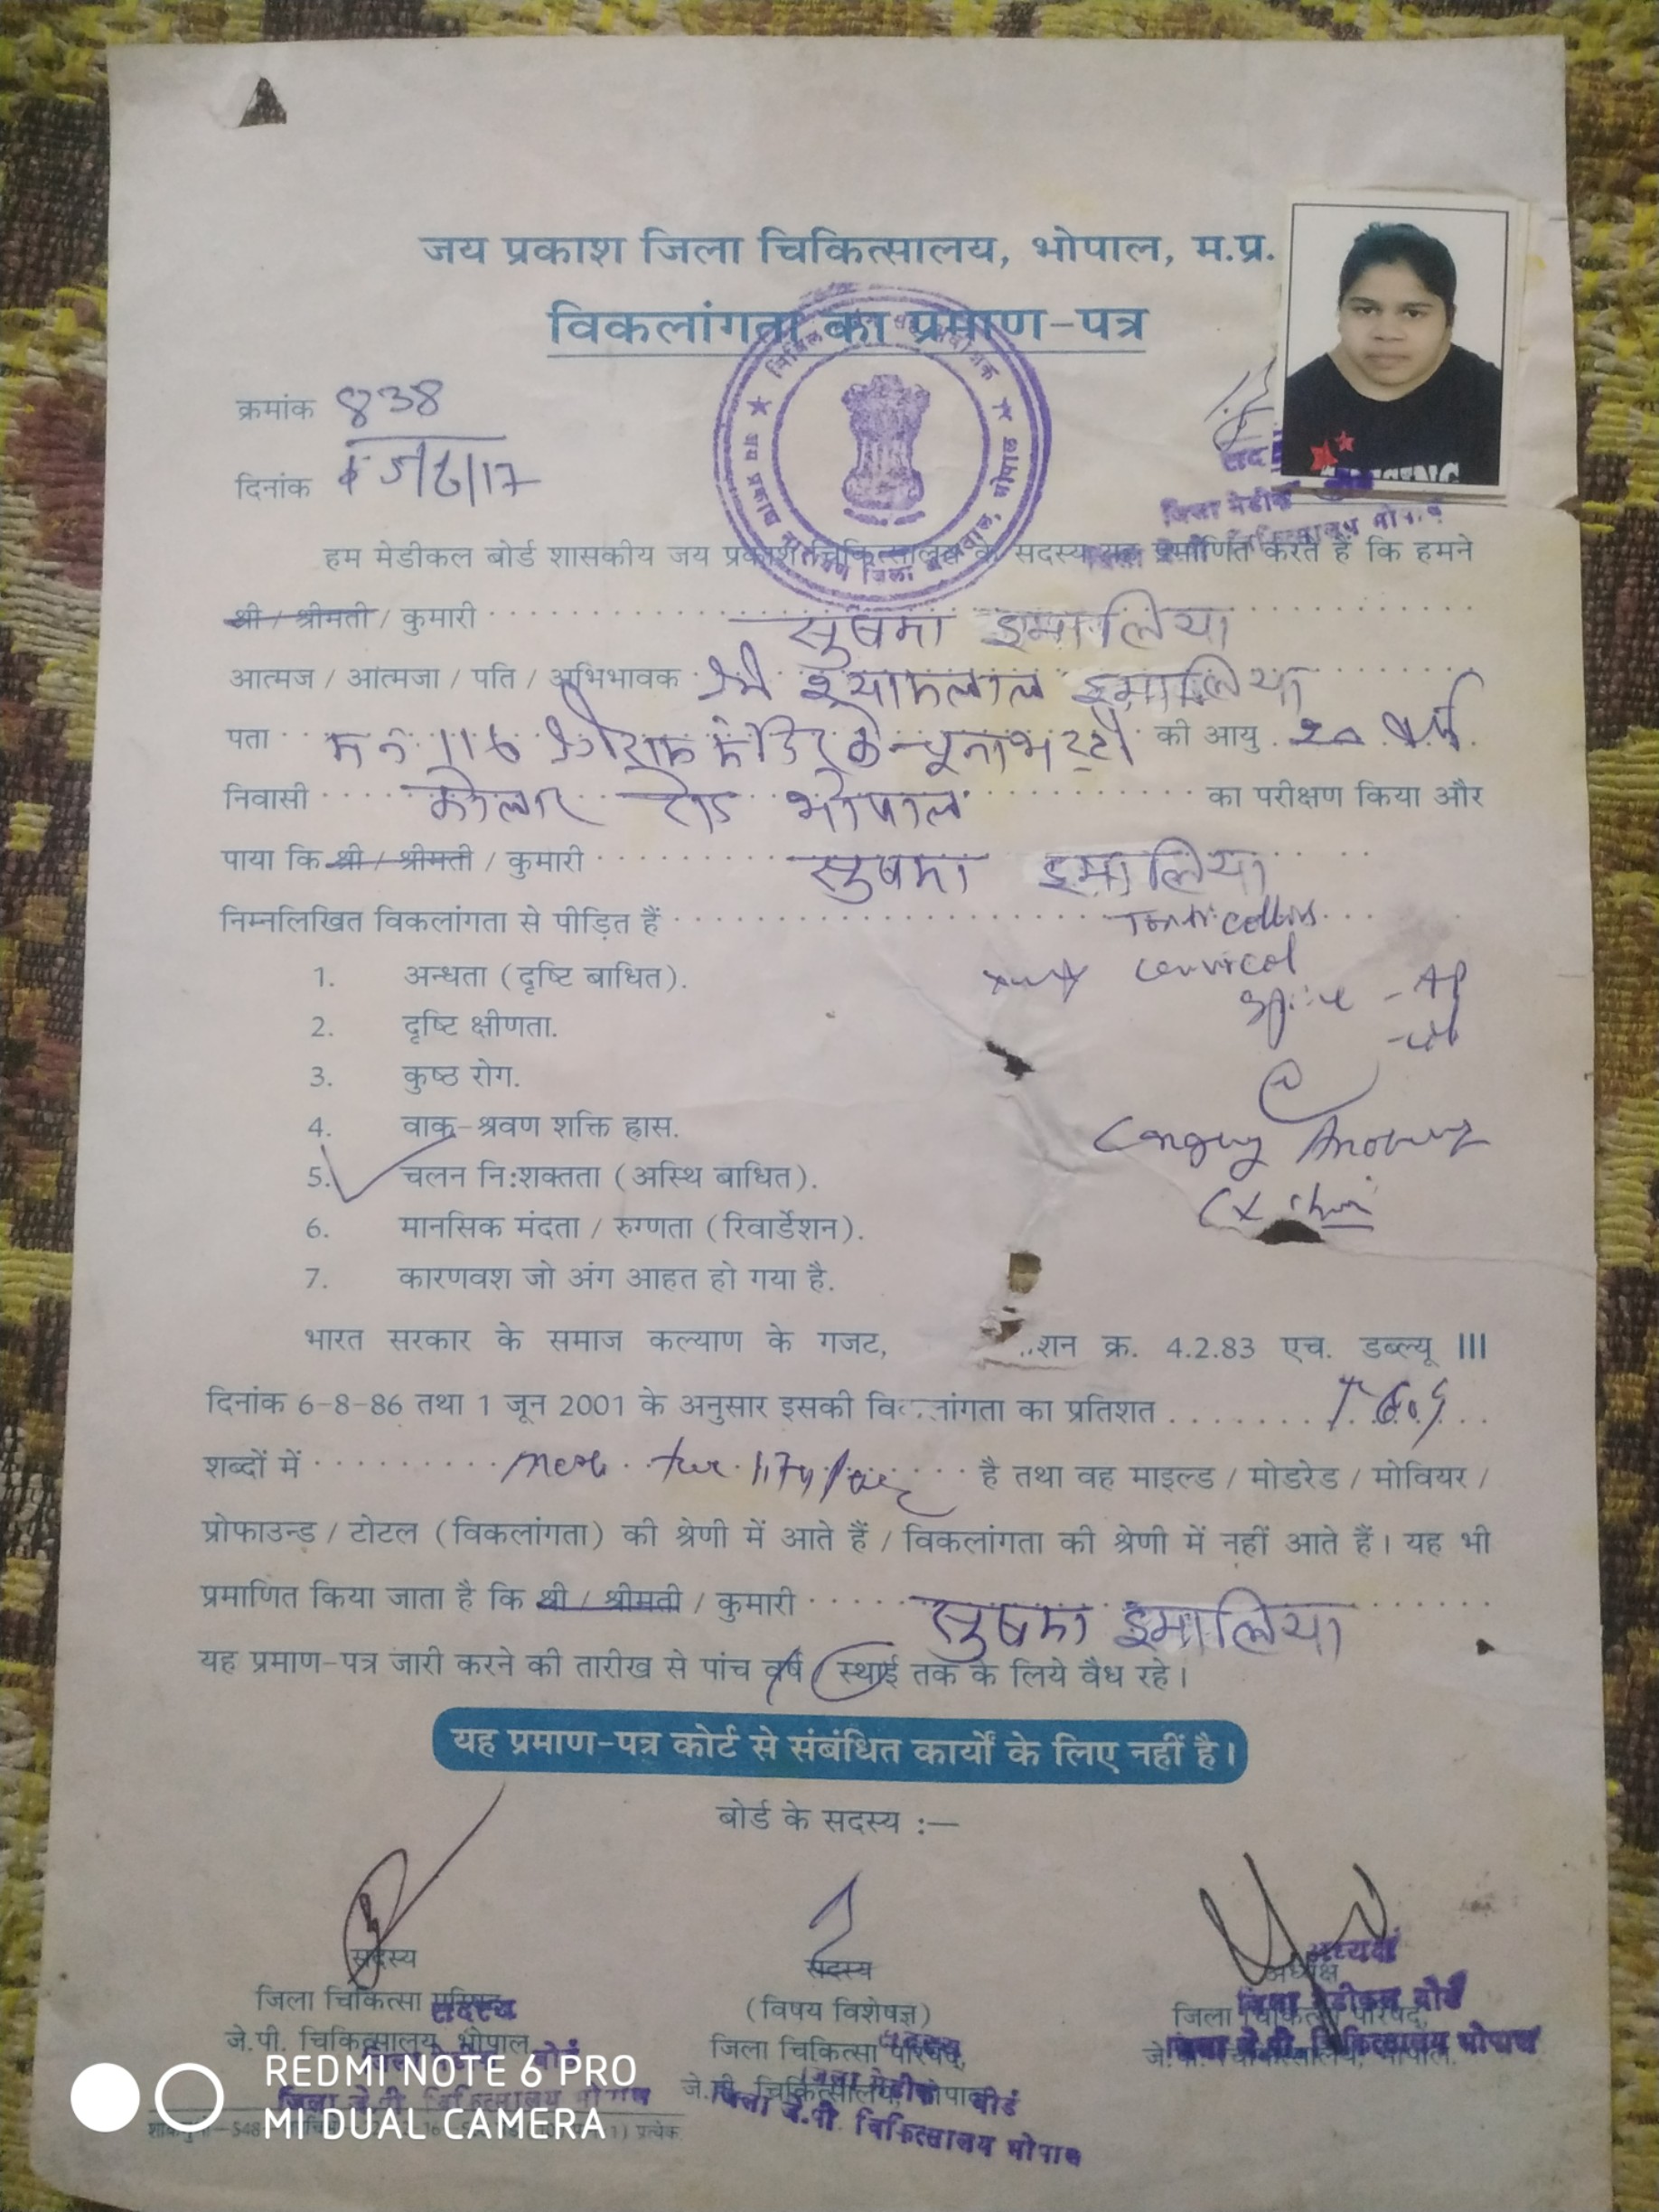 जय प्रकाश जिला चिकित्सालय, भोपाल, म.प्र.
विकलांगता का प्रमाण-पत्र
क्रमांक 838
दिनांक
जिला मेडीकल
हम मेडीकल बोर्ड शासकीय जय प्रकाश चिकित्सालय के सदस्य यह प्रमाणित करते हैं कि हमने
श्री / श्रीमती / कुमारी सुषमा इमालिया
आत्मज / आत्मजा / पति / अभिभावक श्री श्यामलाल इमालिया
पता म नं 116 श्रीराम मंदिर के चूनाभट्टी की आयु 20 वर्ष
निवासी कोलार रोड भोपाल का परीक्षण किया और
पाया कि श्री / श्रीमती / कुमारी सुषमा इमालिया
निम्नलिखित विकलांगता से पीड़ित हैं
1. अन्धता (दृष्टि बाधित).
cervical
2. दृष्टि क्षीणता.
spine - AP
3. कुष्ठ रोग.
4. वाक्-श्रवण शक्ति ह्रास.
5. चलन नि:शक्तता (अस्थि बाधित).
6. मानसिक मंदता / रुग्णता (रिवार्डेशन).
7. कारणवश जो अंग आहत हो गया है.
भारत सरकार के समाज कल्याण के गजट, शन क्र. 4.2.83 एच. डब्ल्यू III
दिनांक 6-8-86 तथा 1 जून 2001 के अनुसार इसकी विकलांगता का प्रतिशत
शब्दों में है तथा वह माइल्ड / मोडरेड / मोवियर /
प्रोफाउन्ड / टोटल (विकलांगता) की श्रेणी में आते हैं / विकलांगता की श्रेणी में नहीं आते हैं। यह भी
प्रमाणित किया जाता है कि श्री / श्रीमती / कुमारी सुषमा इमालिया
यह प्रमाण-पत्र जारी करने की तारीख से पांच वर्ष स्थाई तक के लिये वैध रहे।
यह प्रमाण-पत्र कोर्ट से संबंधित कार्यों के लिए नहीं है।
बोर्ड के सदस्य :—
सदस्य
जिला चिकित्सा परिषद,
सदस्य
जे.पी. चिकित्सालय, भोपाल
जिला जे.पी. चिकित्सालय भोपाल
सदस्य
(विषय विशेषज्ञ)
जिला चिकित्सा परिषद,
जे.पी. चिकित्सालय, भोपाल
जिला जे.पी. चिकित्सालय भोपाल
अध्यक्ष
अध्यक्ष
जिला मेडीकल बोर्ड
जिला चिकित्सा परिषद,
जिला जे.पी. चिकित्सालय भोपाल
REDMI NOTE 6 PRO
MI DUAL CAMERA